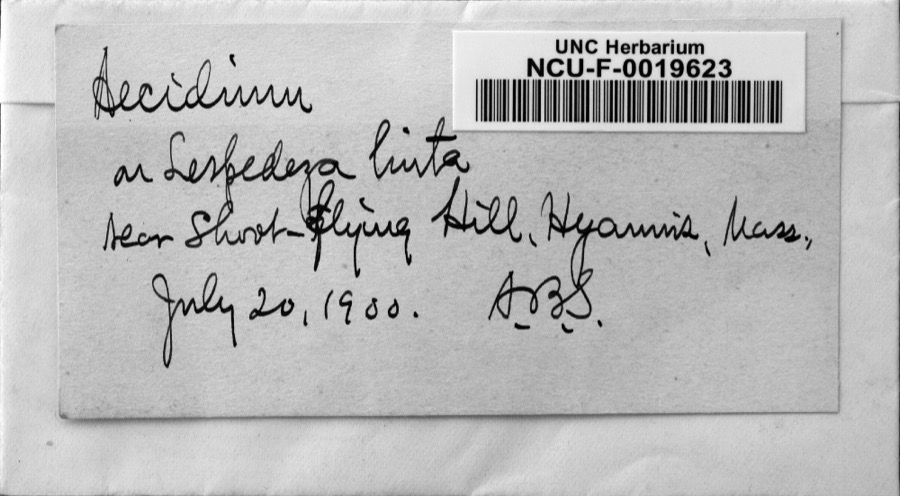 UNC Herbarium
NCU-F-0019623
Aecidium
on Lespedeza hirta
near Shoot-flying Hill, Hyannis, Mass.,
July 20, 1900. A.B.S.